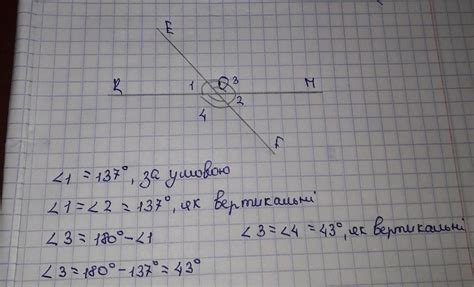 E
R 1 O 3 M
4 2
F
∠1 = 137°, за умовою
∠1 = ∠2 = 137°, як вертикальні
∠3 = 180° - ∠1 ∠3 = ∠4 = 43°, як вертикальні
∠3 = 180° - 137° = 43°